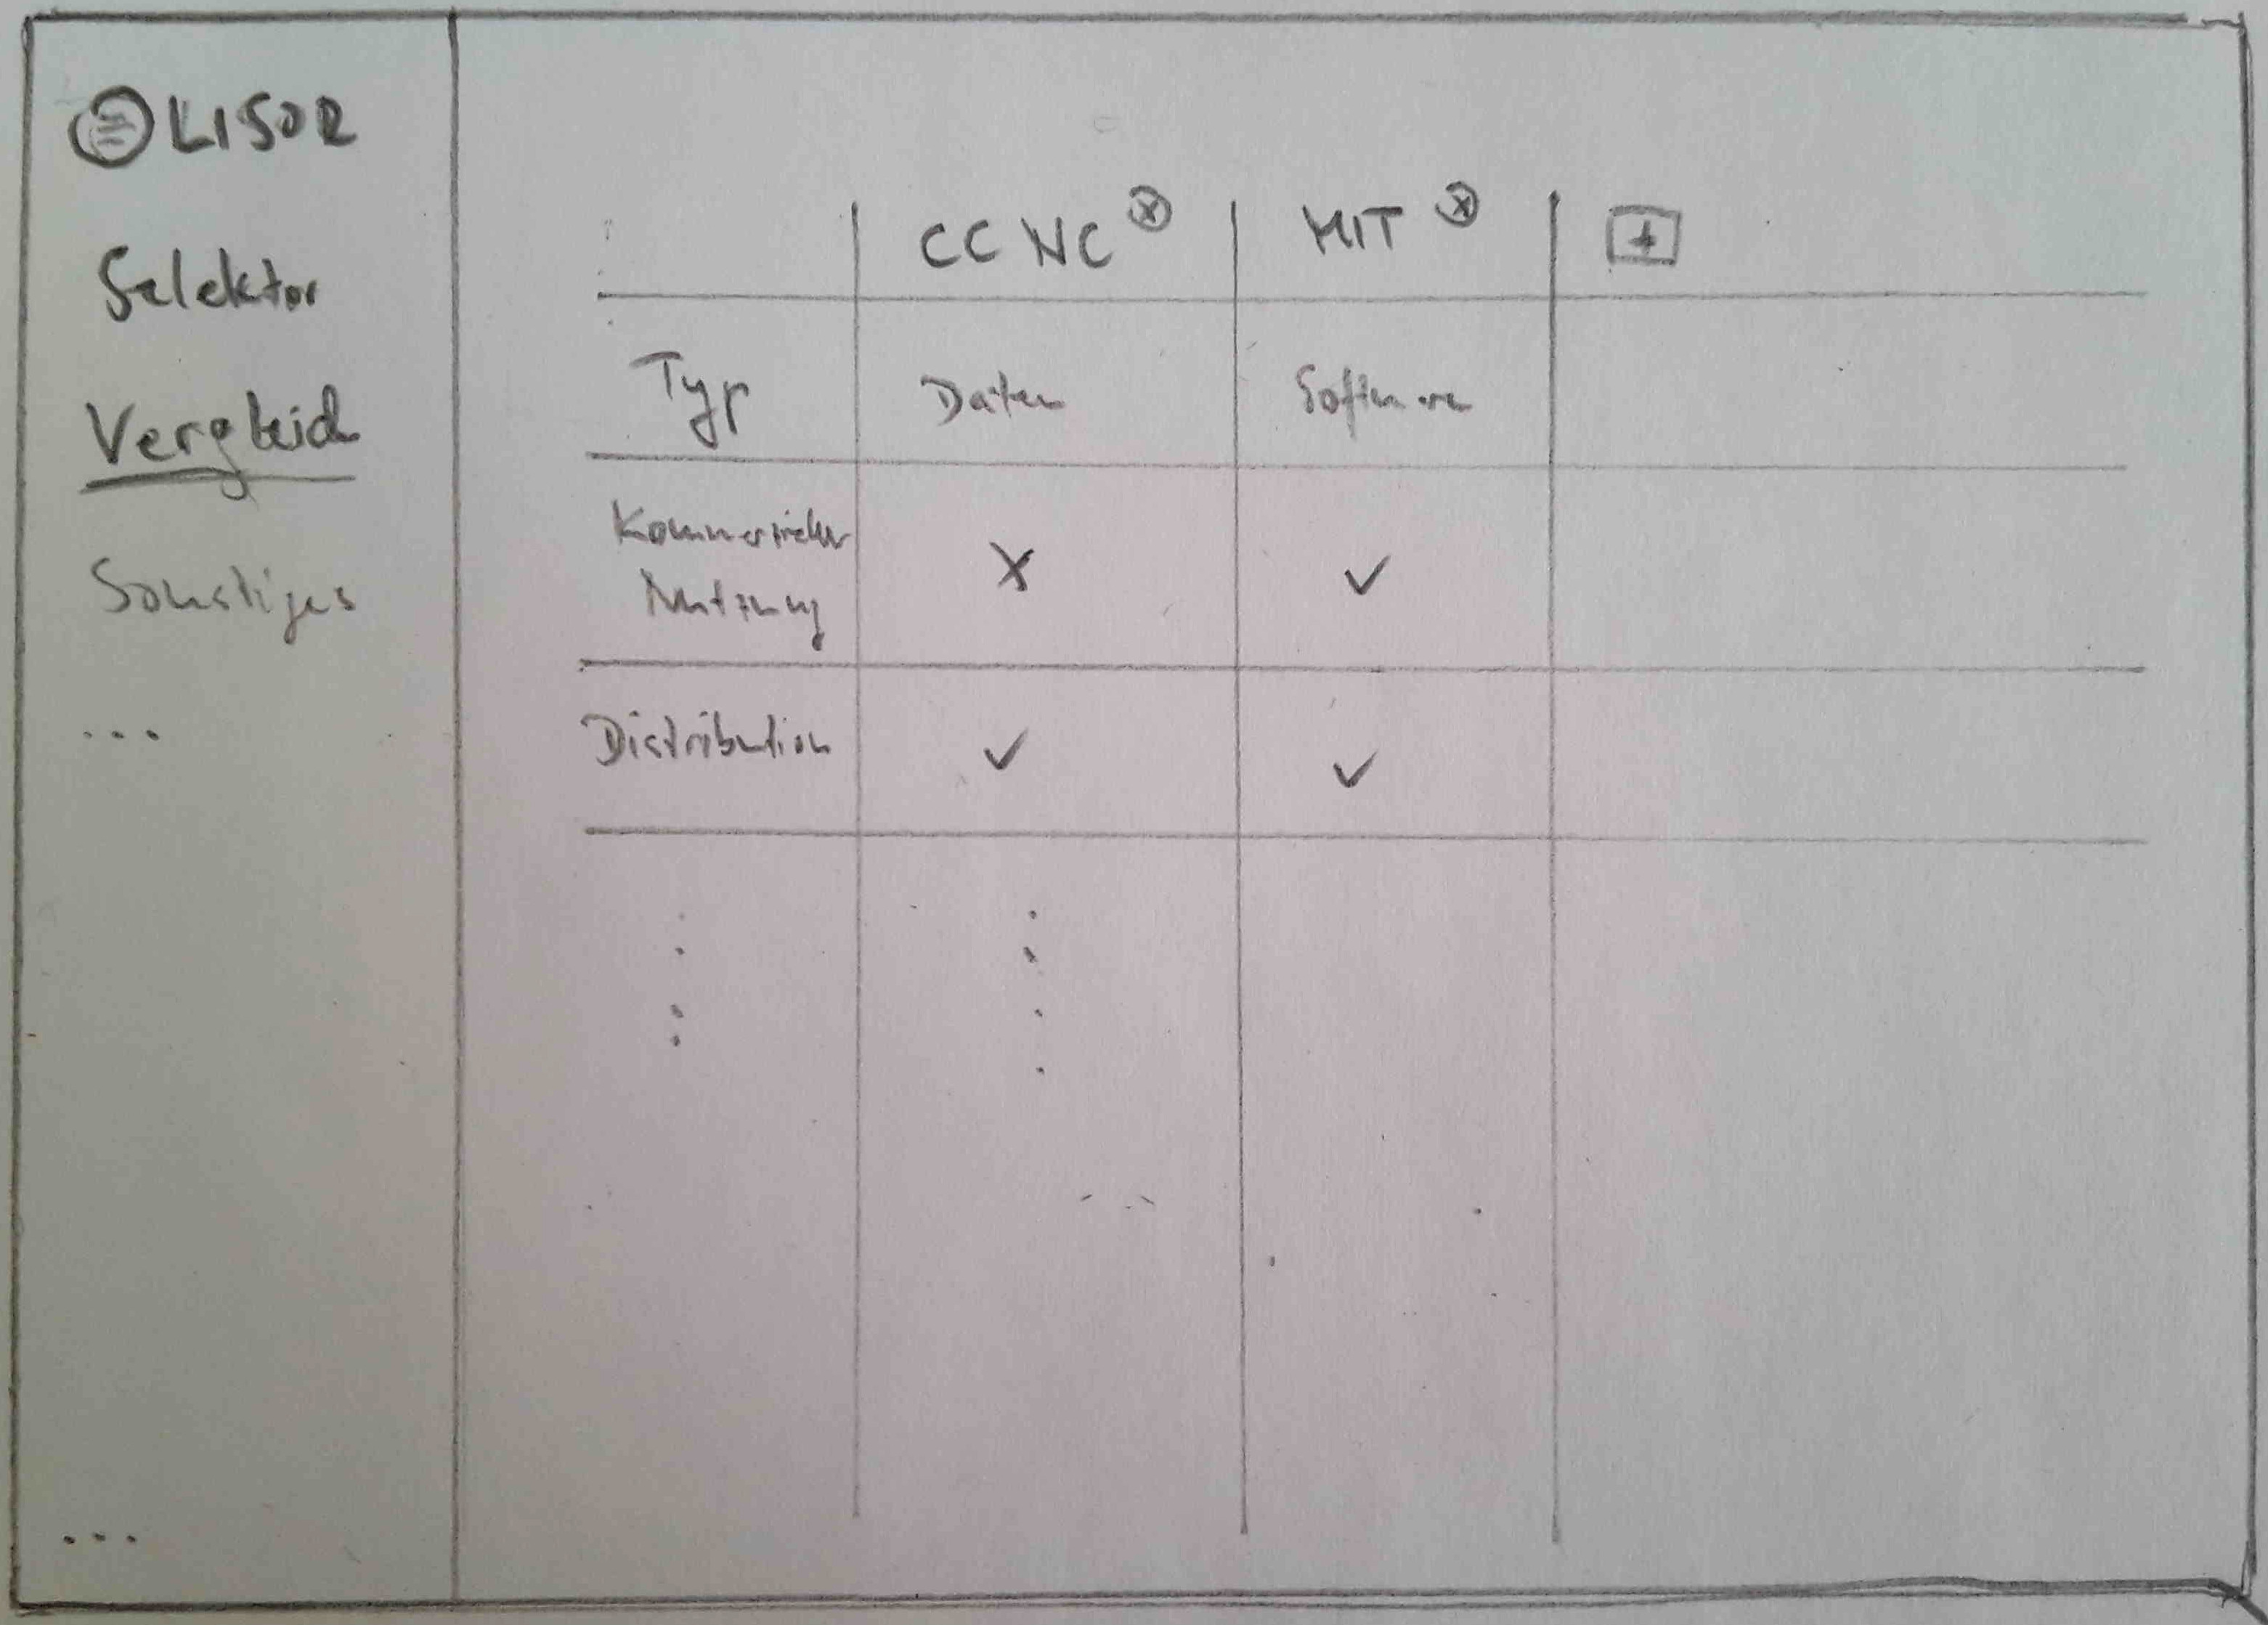 LISOR
Selektor
Vergleich
Sonstiges
...
...
CC NC MIT +
Typ Daten Software
Kommerzielle
Nutzung X ✓
Distribution ✓ ✓